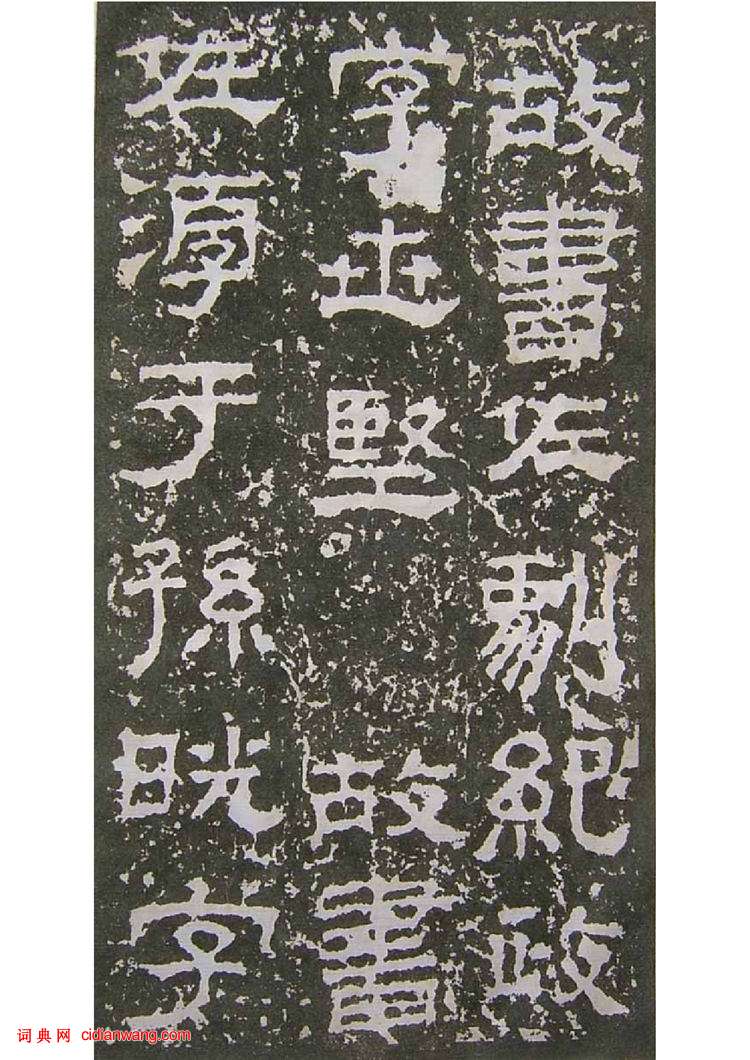 故書佐劇紀政
字世堅 故書
佐淳于孫晄字
词典网 cidianwang.com